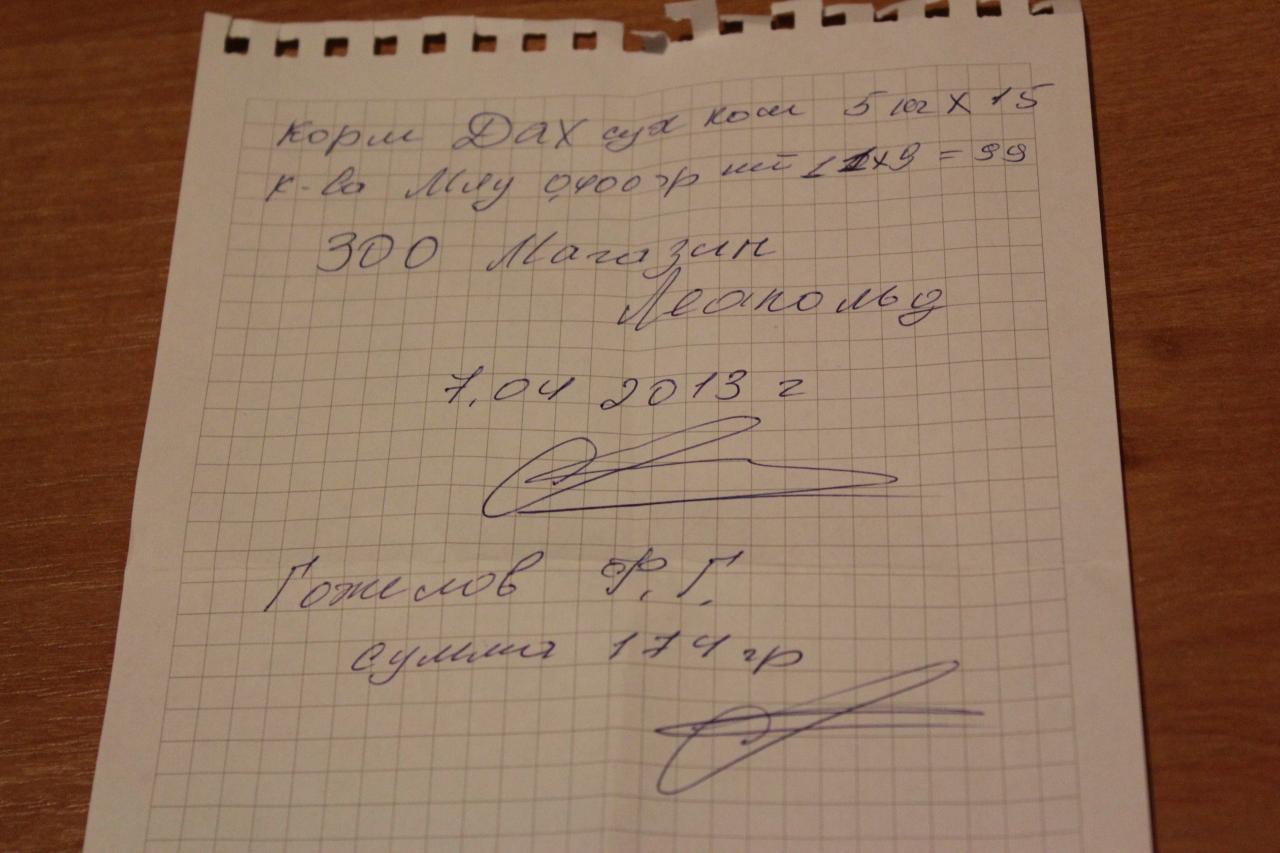 корм Дах сух кош 5 кг х 15
к-ва Мяу 0,400гр шт 11х9 = 99
ЗОО Магазин
Леапольд
7.04 2013 г
Гожелов Ф.Г.
сумма 174 гр